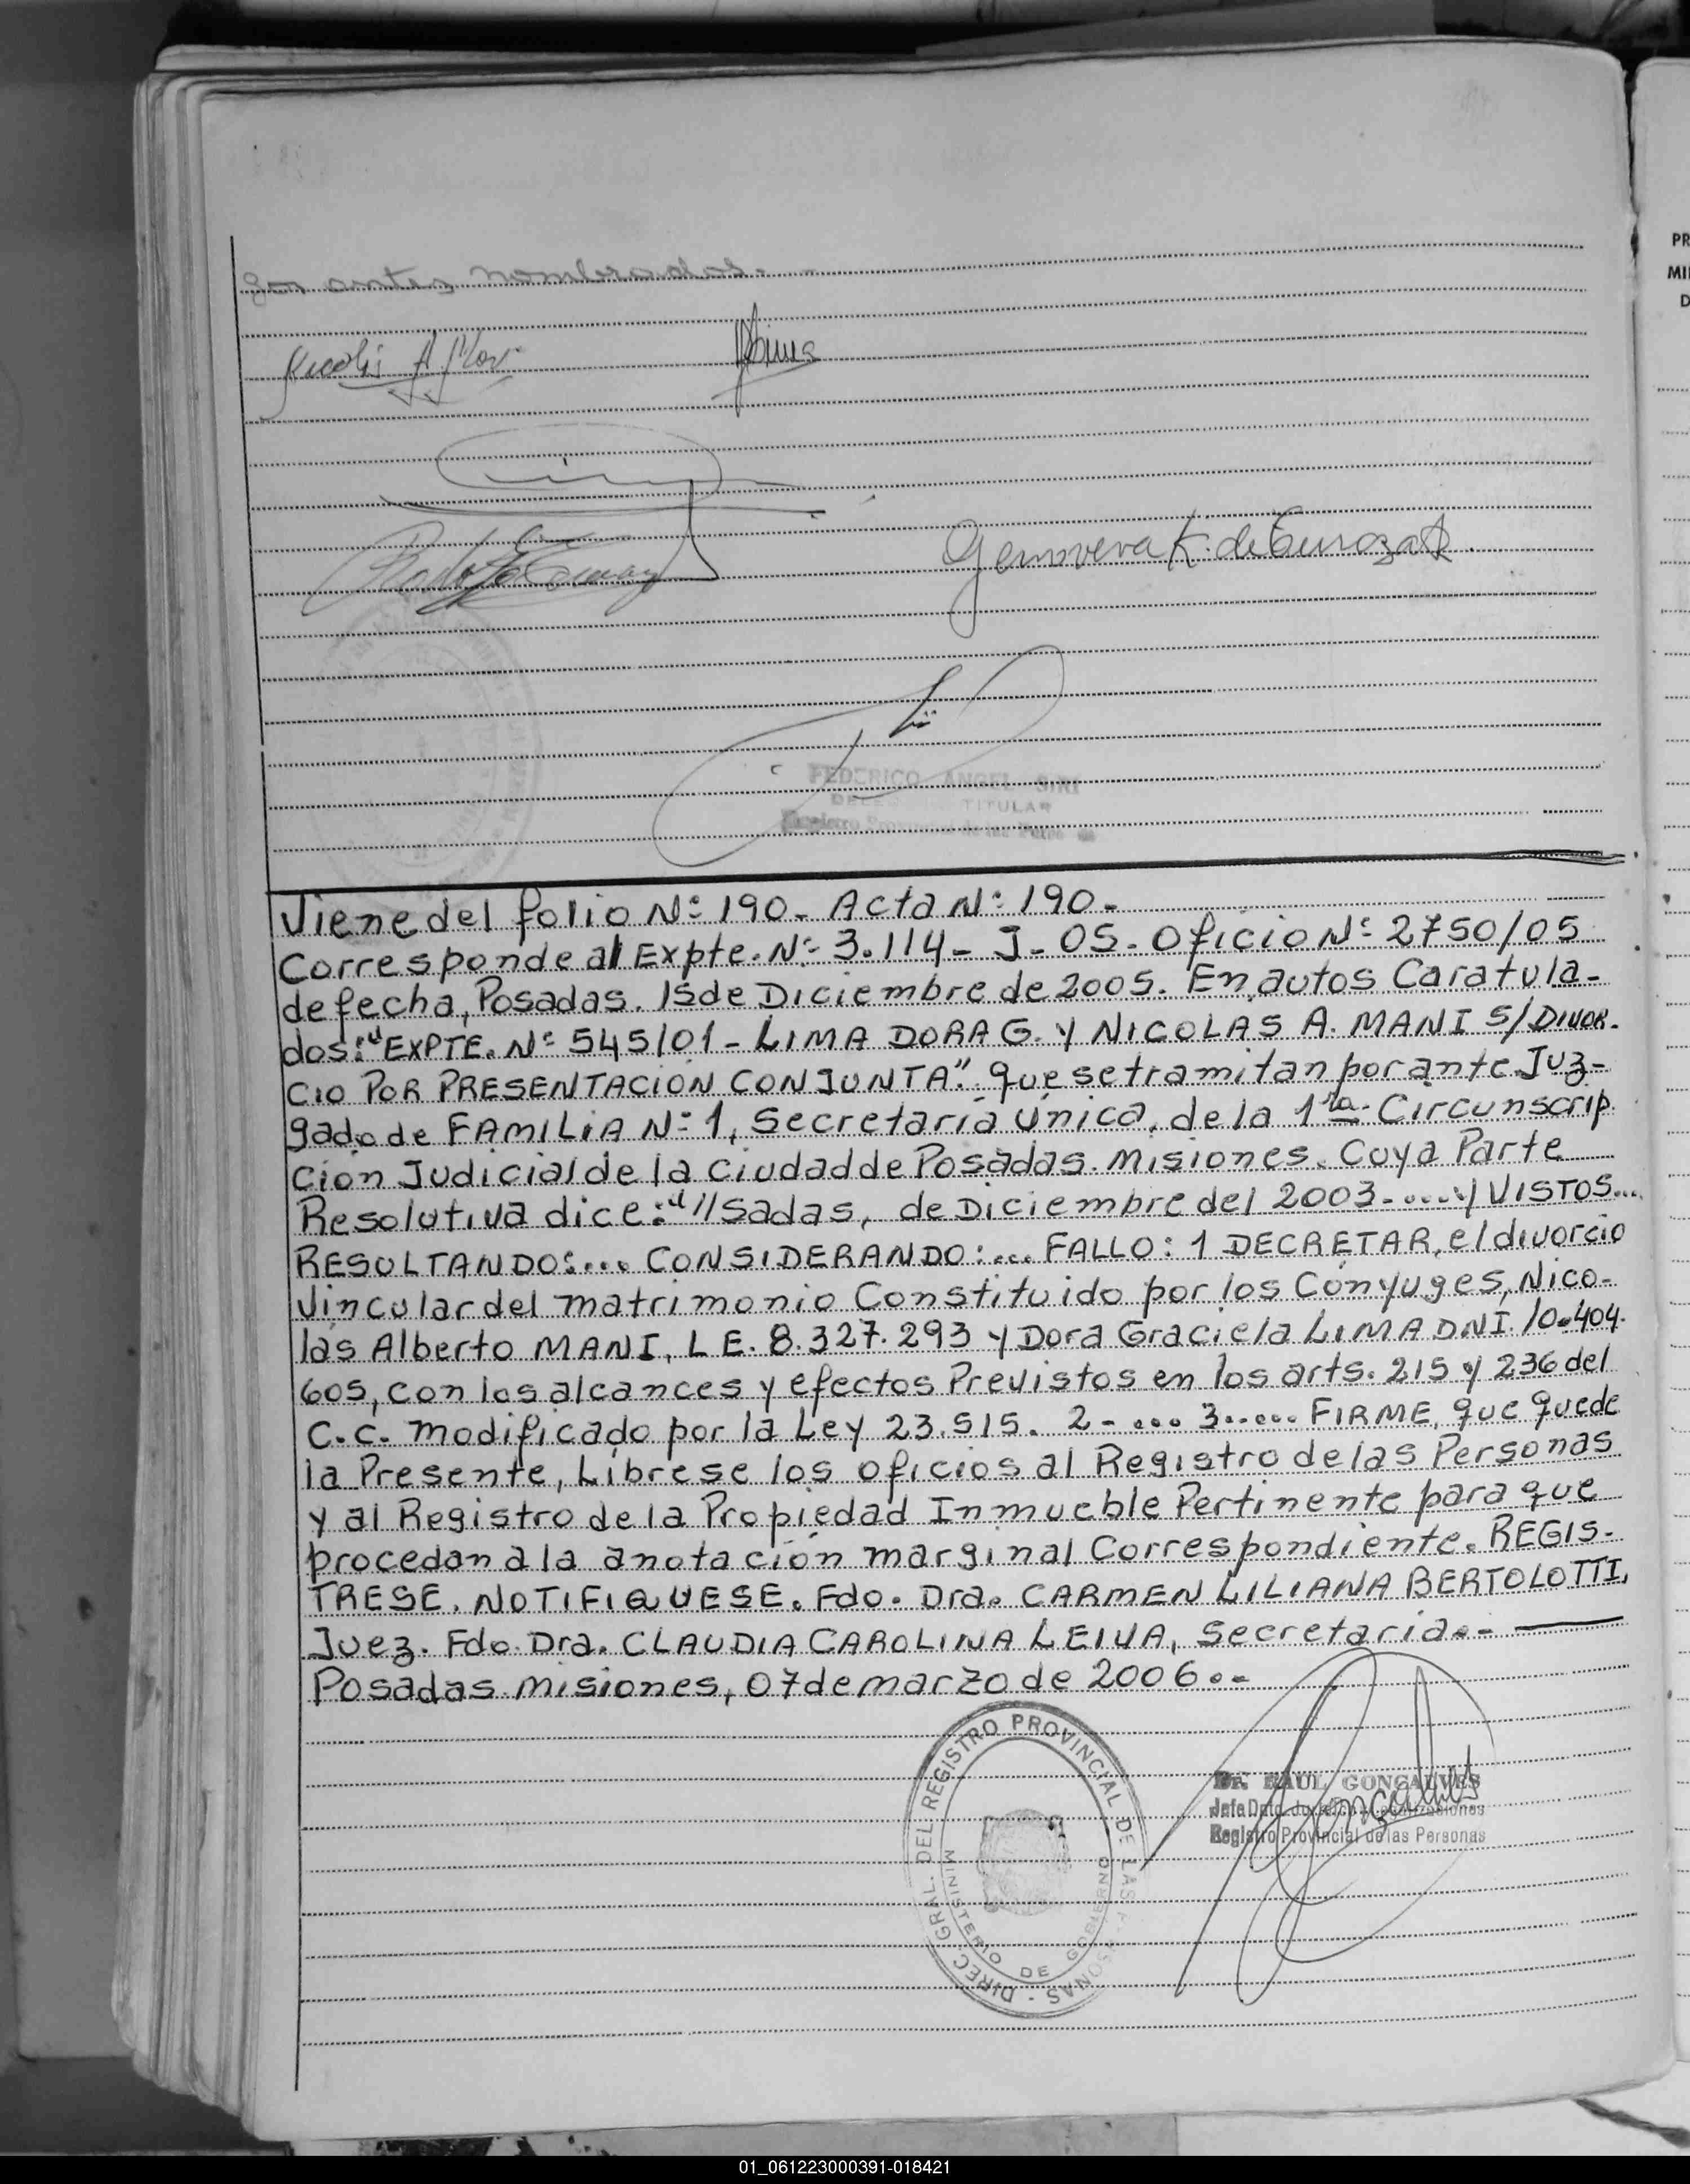 gos antes nombrados.
Genoveva K. de
FEDERICO ANGEL SIRI
TITULAR
Viene del folio Nº 190- Acta Nº 190-
Corresponde al Expte. Nº 3.114- J- 05- Oficio Nº 2750/05
de fecha, Posadas. 15 de Diciembre de 2005. En autos Caratula-
dos: "EXPTE. Nº 545/01- LIMA DORA G. Y NICOLAS A. MANI S/DIVOR-
CIO POR PRESENTACION CONJUNTA". que se tramitan por ante Juz-
gado de FAMILIA Nº 1, Secretaría Única, de la 1ra. Circunscrip
ción Judicial de la Ciudad de Posadas. Misiones. Cuya Parte
Resolutiva dice: "//sadas, de Diciembre del 2003- .... Y VISTOS...
RESULTANDO:... CONSIDERANDO:... FALLO: 1 DECRETAR, el divorcio
vincular del matrimonio Constituido por los Cónyuges, Nico-
las Alberto MANI, L E. 8.327.293 y Dora Graciela LIMA DNI. 10.404.
605, con los alcances y efectos Previstos en los arts. 215 y 236 del
C.C. modificado por la Ley 23.515. 2- ... 3..... FIRME, que quede
la Presente, Líbrese los oficios al Registro de las Personas
y al Registro de la Propiedad Inmueble Pertinente para que
procedan a la anotación marginal Correspondiente. REGIS-
TRESE. NOTIFIQUESE. Fdo. Dra. CARMEN LILIANA BERTOLOTTI,
Juez. Fdo. Dra. CLAUDIA CAROLINA LEIVA, Secretaria.-
Posadas. Misiones, 07 de marzo de 2006.-
DIREC. GRAL. DEL REGISTRO PROVINCIAL DE LAS PERSONAS
MINISTERIO DE GOBIERNO
Dr. RAUL GONÇALVES
Jefe Dpto.
Registro Provincial de las Personas
PR
MI
D
01_061223000391-018421